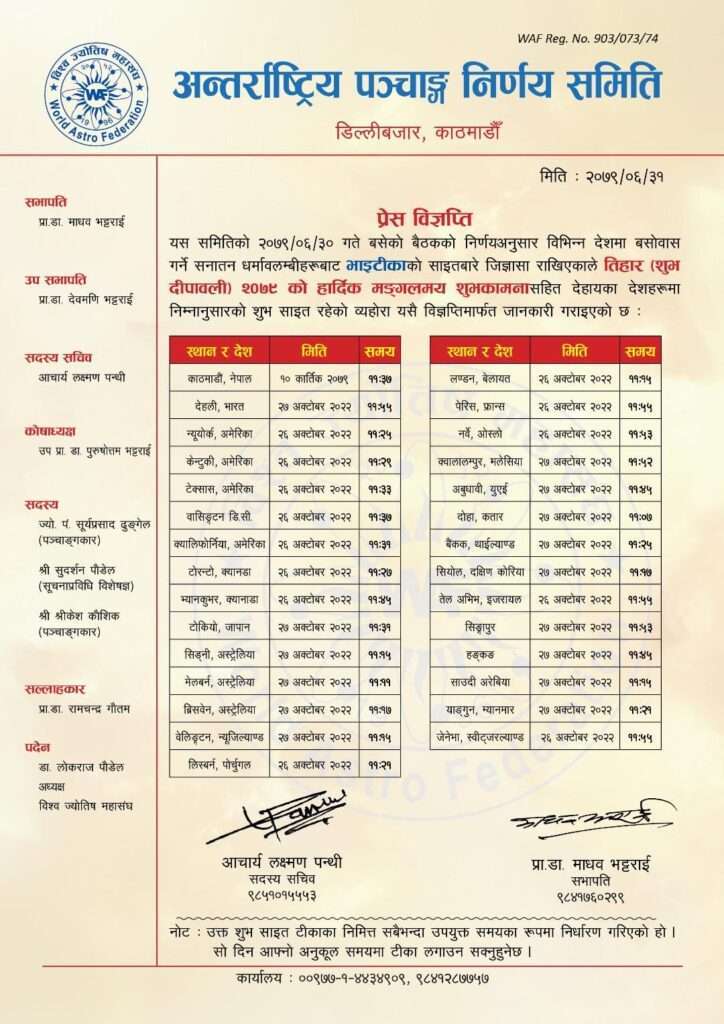 WAF Reg. No. 903/073/74
विश्व ज्योतिष महासंघ
World Astro Federation
WAF
1996
अन्तर्राष्ट्रिय पञ्चाङ्ग निर्णय समिति
डिल्लीबजार, काठमाडौँ
मिति : २०७९/०६/३१
सभापति
प्रा.डा. माधव भट्टराई
उप सभापति
प्रा.डा. देवमणि भट्टराई
सदस्य सचिव
आचार्य लक्ष्मण पन्थी
कोषाध्यक्ष
उप प्रा. डा. पुरुषोत्तम भट्टराई
सदस्य
ज्यो. पं. सूर्यप्रसाद ढुङ्गेल
(पञ्चाङ्गकार)
श्री सुदर्शन पौडेल
(सूचनाप्रविधि विशेषज्ञ)
श्री श्रीकेश कौशिक
(पञ्चाङ्गकार)
सल्लाहकार
प्रा.डा. रामचन्द्र गौतम
पदेन
डा. लोकराज पौडेल
अध्यक्ष
विश्व ज्योतिष महासंघ
प्रेस विज्ञप्ति
यस समितिको २०७९/०६/३० गते बसेको बैठकको निर्णयअनुसार विभिन्न देशमा बसोवास
गर्ने सनातन धर्मावलम्बीहरूबाट भाइटीकाको साइतबारे जिज्ञासा राखिएकाले तिहार (शुभ
दीपावली) २०७९ को हार्दिक मङ्गलमय शुभकामनासहित देहायका देशहरूमा
निम्नानुसारको शुभ साइत रहेको व्यहोरा यसै विज्ञप्तिमार्फत जानकारी गराइएको छ :
स्थान र देश मिति समय
काठमाडौं, नेपाल १० कार्तिक २०७९ ११:३७
देहली, भारत २७ अक्टोबर २०२२ ११:५५
न्यूयोर्क, अमेरिका २६ अक्टोबर २०२२ ११:२५
केन्टुकी, अमेरिका २६ अक्टोबर २०२२ ११:२९
टेक्सास, अमेरिका २६ अक्टोबर २०२२ ११:३३
वासिङ्टन डि.सी. २६ अक्टोबर २०२२ ११:३७
क्यालिफोर्निया, अमेरिका २६ अक्टोबर २०२२ ११:३१
टोरन्टो, क्यानडा २६ अक्टोबर २०२२ ११:२७
भ्यानकुभर, क्यानाडा २६ अक्टोबर २०२२ ११:४५
टोकियो, जापान २७ अक्टोबर २०२२ ११:३१
सिड्नी, अस्ट्रेलिया २७ अक्टोबर २०२२ ११:१५
मेलबर्न, अस्ट्रेलिया २७ अक्टोबर २०२२ ११:११
ब्रिसवेन, अस्ट्रेलिया २७ अक्टोबर २०२२ ११:१७
वेलिङ्टन, न्यूजिल्याण्ड २७ अक्टोबर २०२२ ११:१५
लिस्बर्न, पोर्चुगल २६ अक्टोबर २०२२ ११:२१
स्थान र देश मिति समय
लण्डन, बेलायत २६ अक्टोबर २०२२ ११:१५
पेरिस, फ्रान्स २६ अक्टोबर २०२२ ११:५५
नर्वे, ओस्लो २६ अक्टोबर २०२२ ११:५३
क्वालालम्पुर, मलेसिया २७ अक्टोबर २०२२ ११:५२
अबुधावी, युएई २७ अक्टोबर २०२२ ११:४५
दोहा, कतार २७ अक्टोबर २०२२ ११:०७
बैंकक, थाईल्याण्ड २७ अक्टोबर २०२२ ११:२५
सियोल, दक्षिण कोरिया २७ अक्टोबर २०२२ ११:१७
तेल अभिभ, इजरायल २६ अक्टोबर २०२२ ११:५५
सिङ्गापुर २७ अक्टोबर २०२२ ११:५३
हङ्कङ २७ अक्टोबर २०२२ ११:४५
साउदी अरेबिया २७ अक्टोबर २०२२ ११:१५
याङ्गुन, म्यानमार २७ अक्टोबर २०२२ ११:२१
जेनेभा, स्वीट्जरल्याण्ड २६ अक्टोबर २०२२ ११:५५
आचार्य लक्ष्मण पन्थी
सदस्य सचिव
९८५१०१५५५३
प्रा.डा. माधव भट्टराई
सभापति
९८४१७६०२९९
नोट : उक्त शुभ साइत टीकाका निमित्त सबैभन्दा उपयुक्त समयका रूपमा निर्धारण गरिएको हो ।
सो दिन आफ्नो अनुकूल समयमा टीका लगाउन सक्नुहुनेछ ।
कार्यालय : ००९७७-१-४४३४९०९, ९८४१२८७७५७